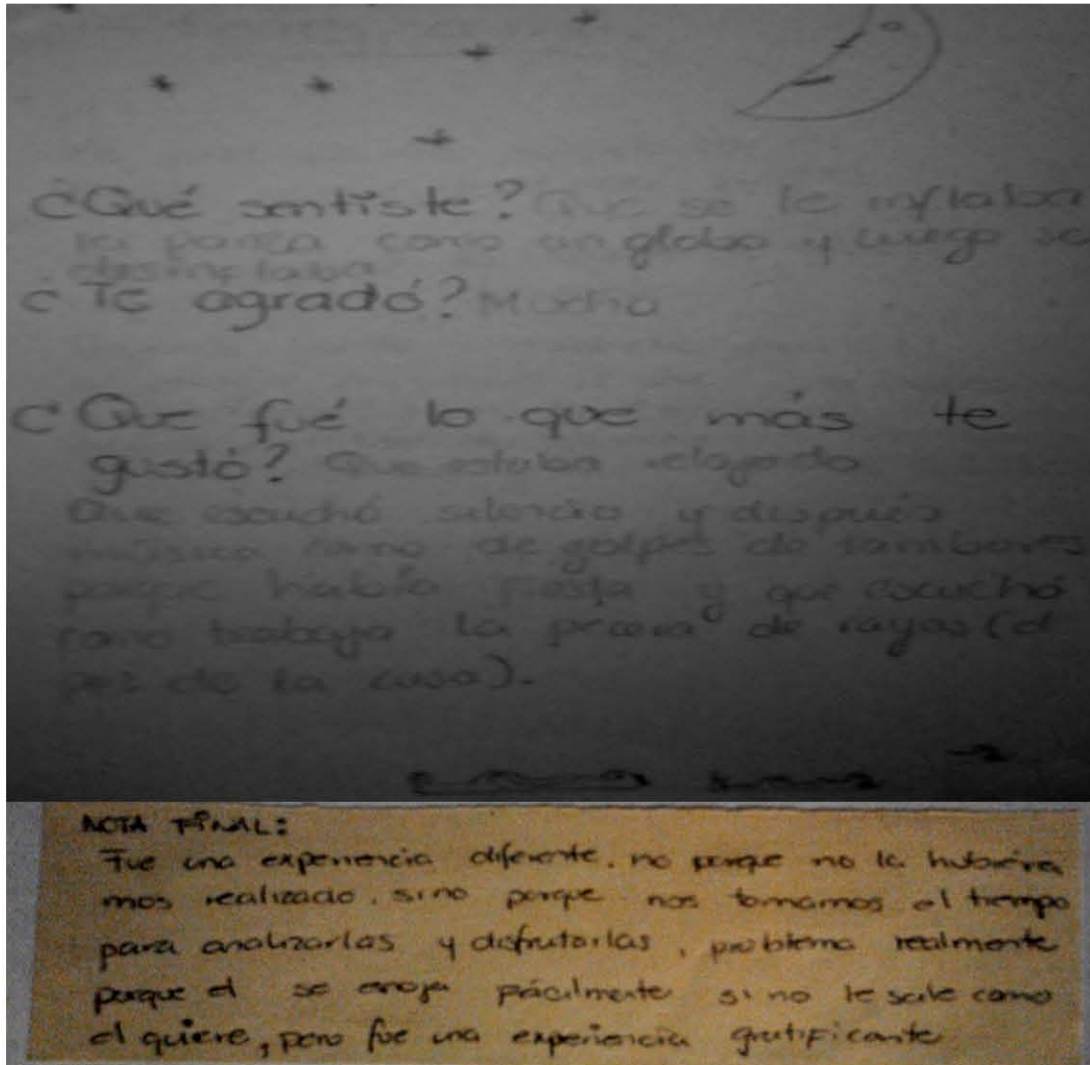 ¿Qué sentiste? Que se le inflaba
la panza como un globo y luego se
desinflaba
¿Te agradó? Mucho
¿Que fué lo que más te
gustó? Que estaba relajado
Que escuchó silencio y después
música como de golpes de tambores
porque había fiesta y que escuchó
como trabaja la pecera de rayas (el
pez de la casa).
NOTA FINAL:
Fue una experiencia diferente. no porque no la hubiéra
mos realizado, sino porque nos tomamos el tiempo
para analizarlas y disfrutarlas, problema realmente
porque el se enoja fácilmente si no le sale como
el quiere, pero fue una experiencia gratificante